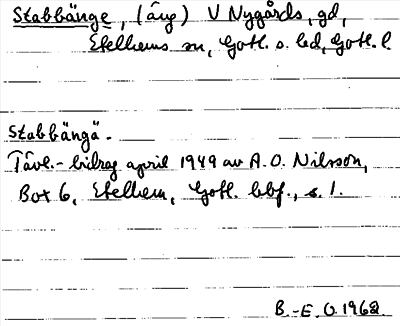 Stabbänge, (äng) V Nygårds, gd,
Etelhems sn, Gotl. s. hd, Gotl. l.
Stabbängä.
Tävl.-bidrag april 1949 av A.O. Nilsson,
Box 6, Etelhem, Gotl. bbf., s. 1.
B.-E. O. 1962.